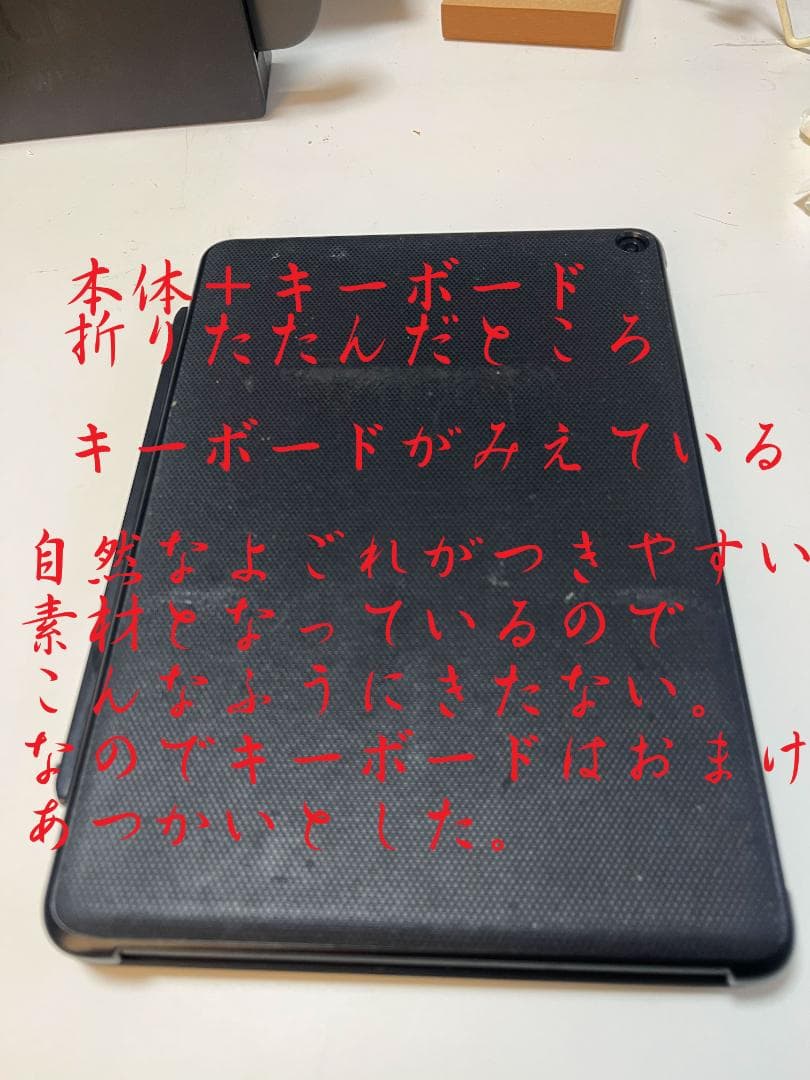 本体＋キーボード
折りたたんだところ
キーボードがみえている
自然なよごれがつきやすい
素材となっているので
こんなふうにきたない。
なのでキーボードはおまけ
あつかいとした。